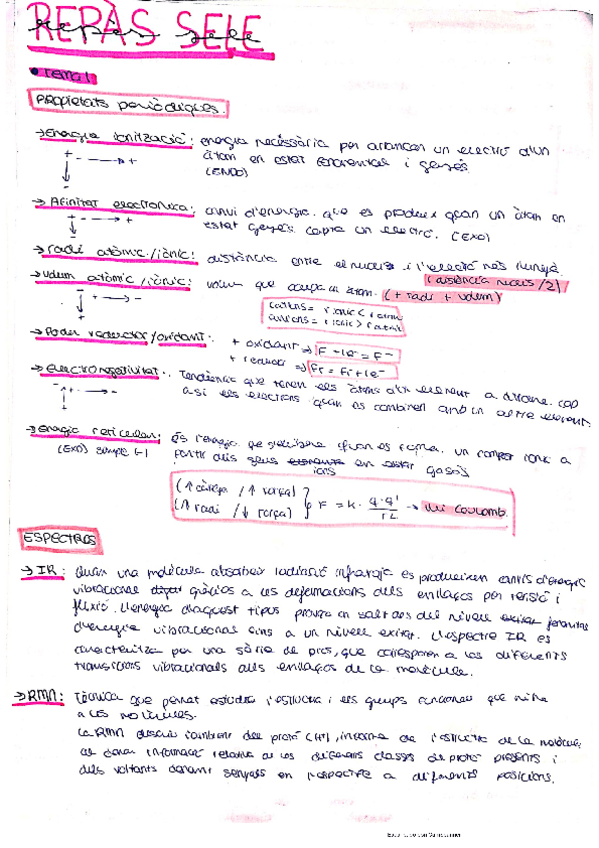 REPÀS SELE
repàs sele
• Tema 1
Propietats periòdiques.
→ Energia ionització: energia necessària per arrancar un electró d'un
àtom en estat fonamental i gasós.
(ENDO)
→ Afinitat electrònica: canvi d'energia que es produeix quan un àtom en
estat gasós capta un electró. (EXO)
→ radi atòmic/iònic: distància entre el nucli i l'electró més llunyà.
(distància nuclis/2)
→ Volum atòmic/iònic: volum que ocupa un àtom. (+ radi + volum)
cations = r ionic < r atòmic
anions = r ionic > r atòmic
→ Poder reductor/oxidant: + oxidant ⇒ F + 1e⁻ = F⁻
+ reductor ⇒ Fr = Fr + 1e⁻
→ Electronegativitat: Tendència que tenen els àtoms d'un element a atraure cap
a si els electrons quan es combinen amb un altre element.
→ Energia reticular: és l'energia que s'allibera quan es forma un compost iònic a
(EXO) sempre (-) partir dels seus elements ions en estat gasós
(↑ càrrega / ↑ força)
(↑ radi / ↓ força) F = K · q·q' / r2 → llei Coulomb.
ESPECTROS
→ IR: Quan una molècula absorbeix radiació infraroja es produeixen canvis d'energia
vibracional degut gràcies a les deformacions dels enllaços per tensió i
flexió. L'energia d'aquest tipus provoca un salt des del nivell excitat fonamental
d'energia vibracional fins a un nivell excitat. L'espectre IR es
caracteritza per una sèrie de pics, que corresponen a les diferents
transicions vibracionals dels enllaços de la molècula.
→ RMN: Tècnica que permet estudiar l'estructura i els grups funcionals que hi ha
a les molècules.
La RMN descriu l'ambient del protó (H), informa de l'estructura de la molècula
al donar informació relativa a les diferents classes de protó presents i
dels voltants donant senyals en l'espectre a diferents posicions.